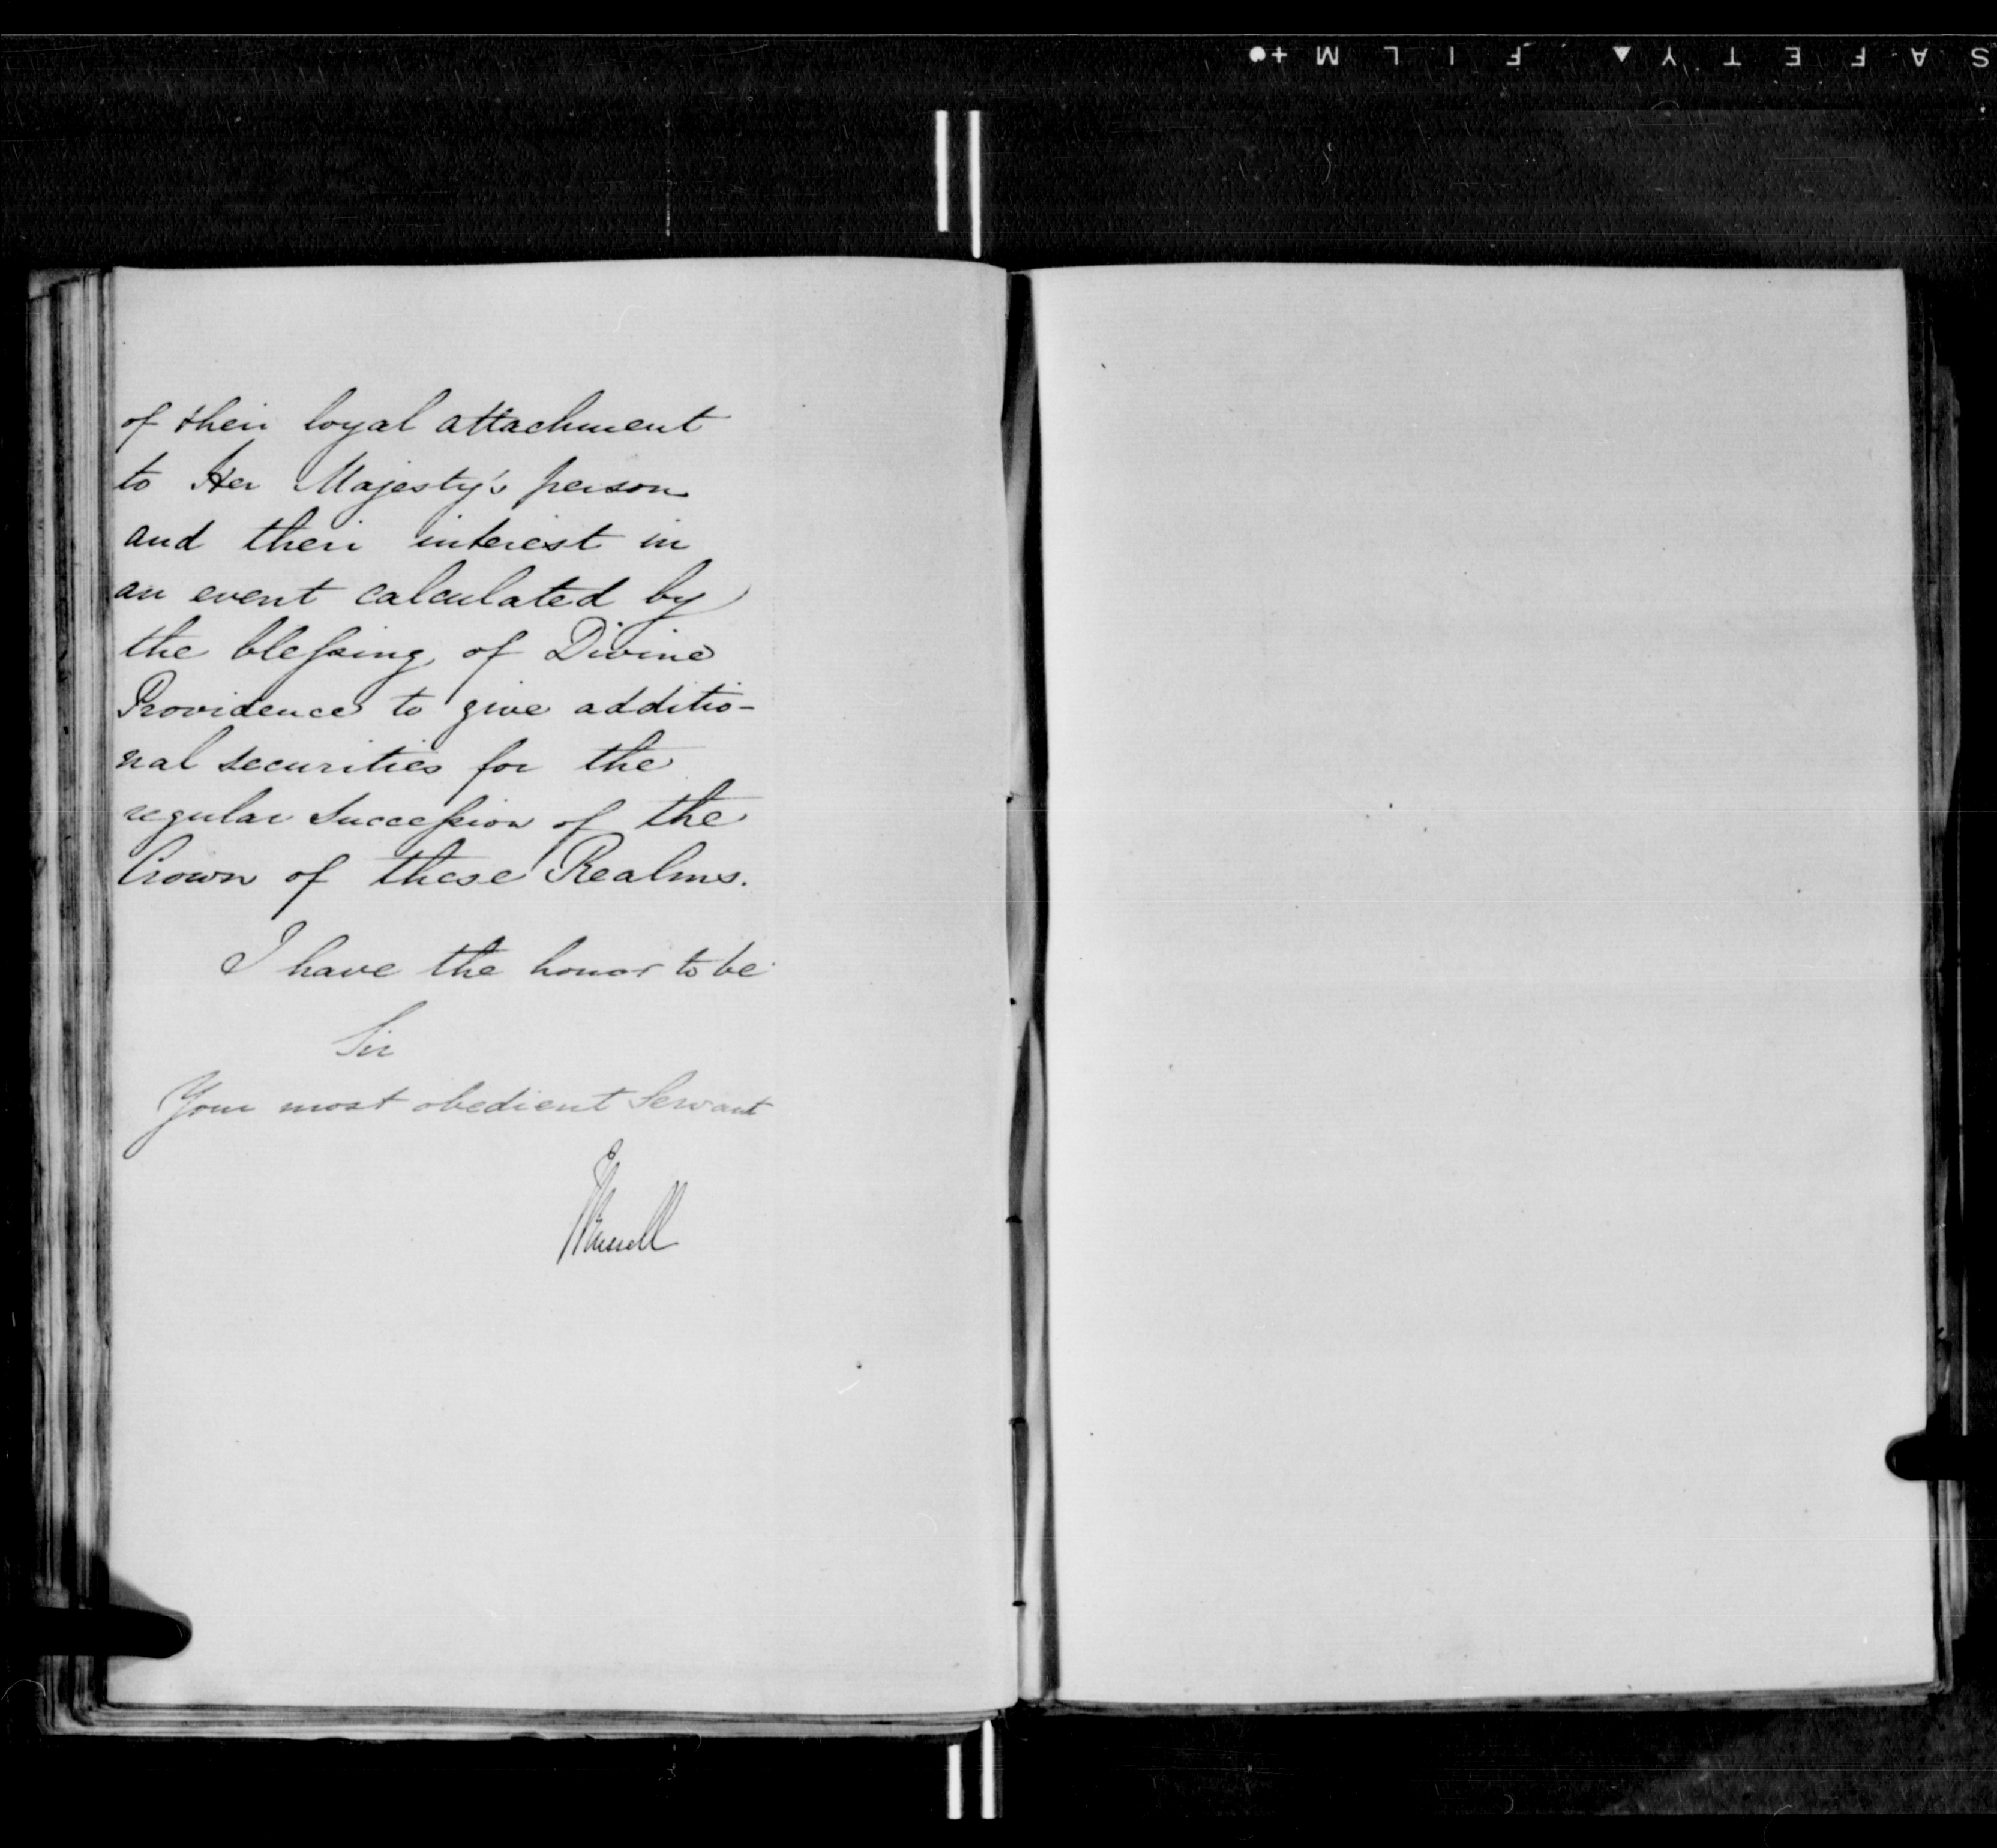 SAFETY▲FILM+●
of their loyal attachment
to Her Majesty's person
and their interest in
an event calculated by
the blessing of Divine
Providence to give additio-
nal securities for the
regular Succession of the
Crown of these Realms.
I have the honor to be
Sir
Your most obedient Servant
J Russell